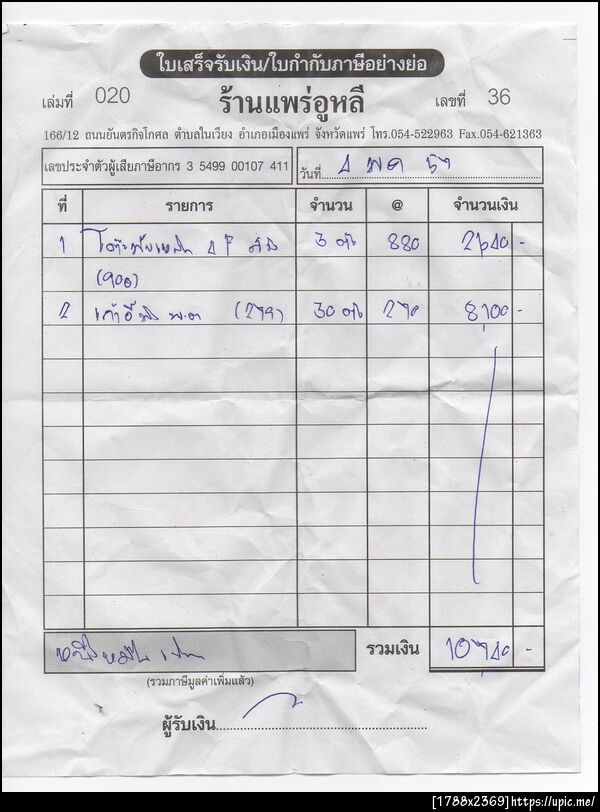 ใบเสร็จรับเงิน/ใบกำกับภาษีอย่างย่อ
เล่มที่ 020 ร้านแพร่อูหลี เลขที่ 36
166/12 ถนนยันตรกิจโกศล ตำบลในเวียง อำเภอเมืองแพร่ จังหวัดแพร่ โทร.054-522963 Fax.054-621363
เลขประจำตัวผู้เสียภาษีอากร 3 5499 00107 411 วันที่
ที่ รายการ จำนวน @ จำนวนเงิน
1 3 880 2640 -
(900)
2 เก้าอี้ (299) 30 270 8,100 -
รวมเงิน 10740 -
(รวมภาษีมูลค่าเพิ่มแล้ว)
ผู้รับเงิน
[1788x2369]https://upic.me/